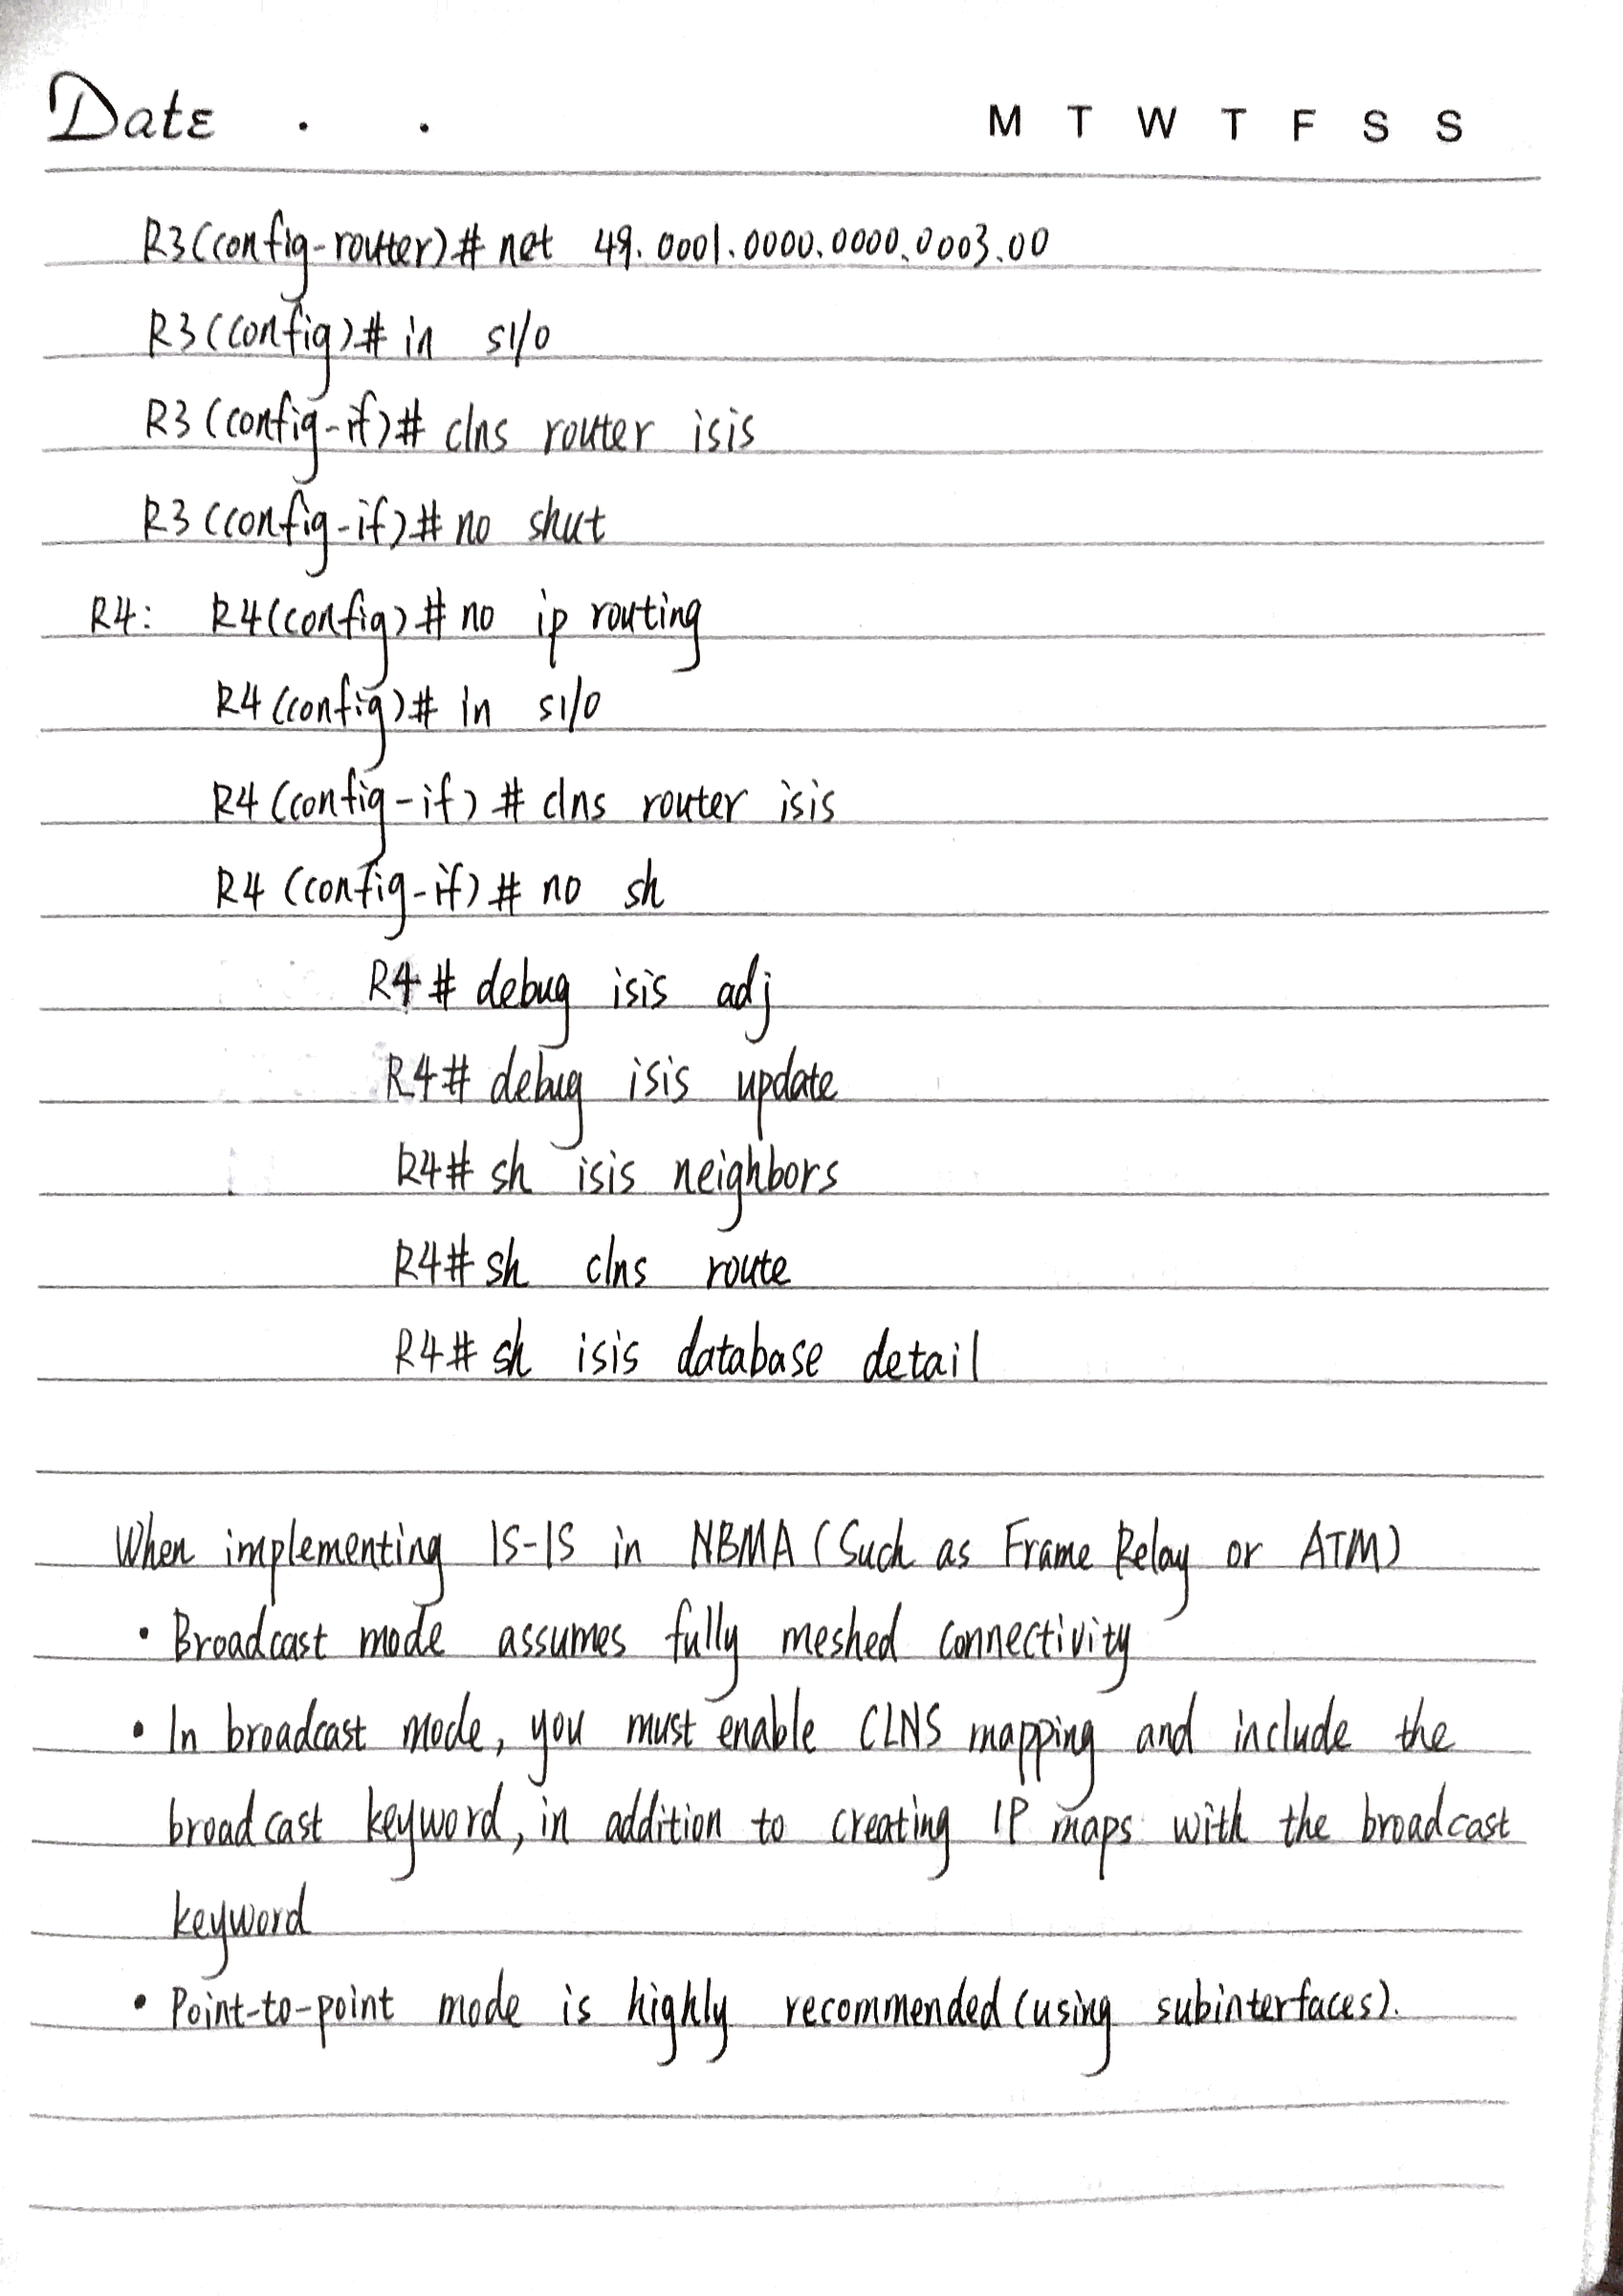 Date . . M T W T F S S
R3(config-router)# net 49.0001.0000.0000.0003.00
R3(config)# in s1/0
R3(config-if)# clns router isis
R3(config-if)# no shut
R4: R4(config)# no ip routing
R4(config)# in s1/0
R4(config-if)# clns router isis
R4(config-if)# no sh
R4# debug isis adj
R4# debug isis update
R4# sh isis neighbors
R4# sh clns route
R4# sh isis database detail
When implementing IS-IS in NBMA (Such as Frame Relay or ATM)
• Broadcast mode assumes fully meshed connectivity
• In broadcast mode, you must enable CLNS mapping and include the
broadcast keyword, in addition to creating IP maps with the broadcast
keyword
• Point-to-point mode is highly recommended (using subinterfaces).